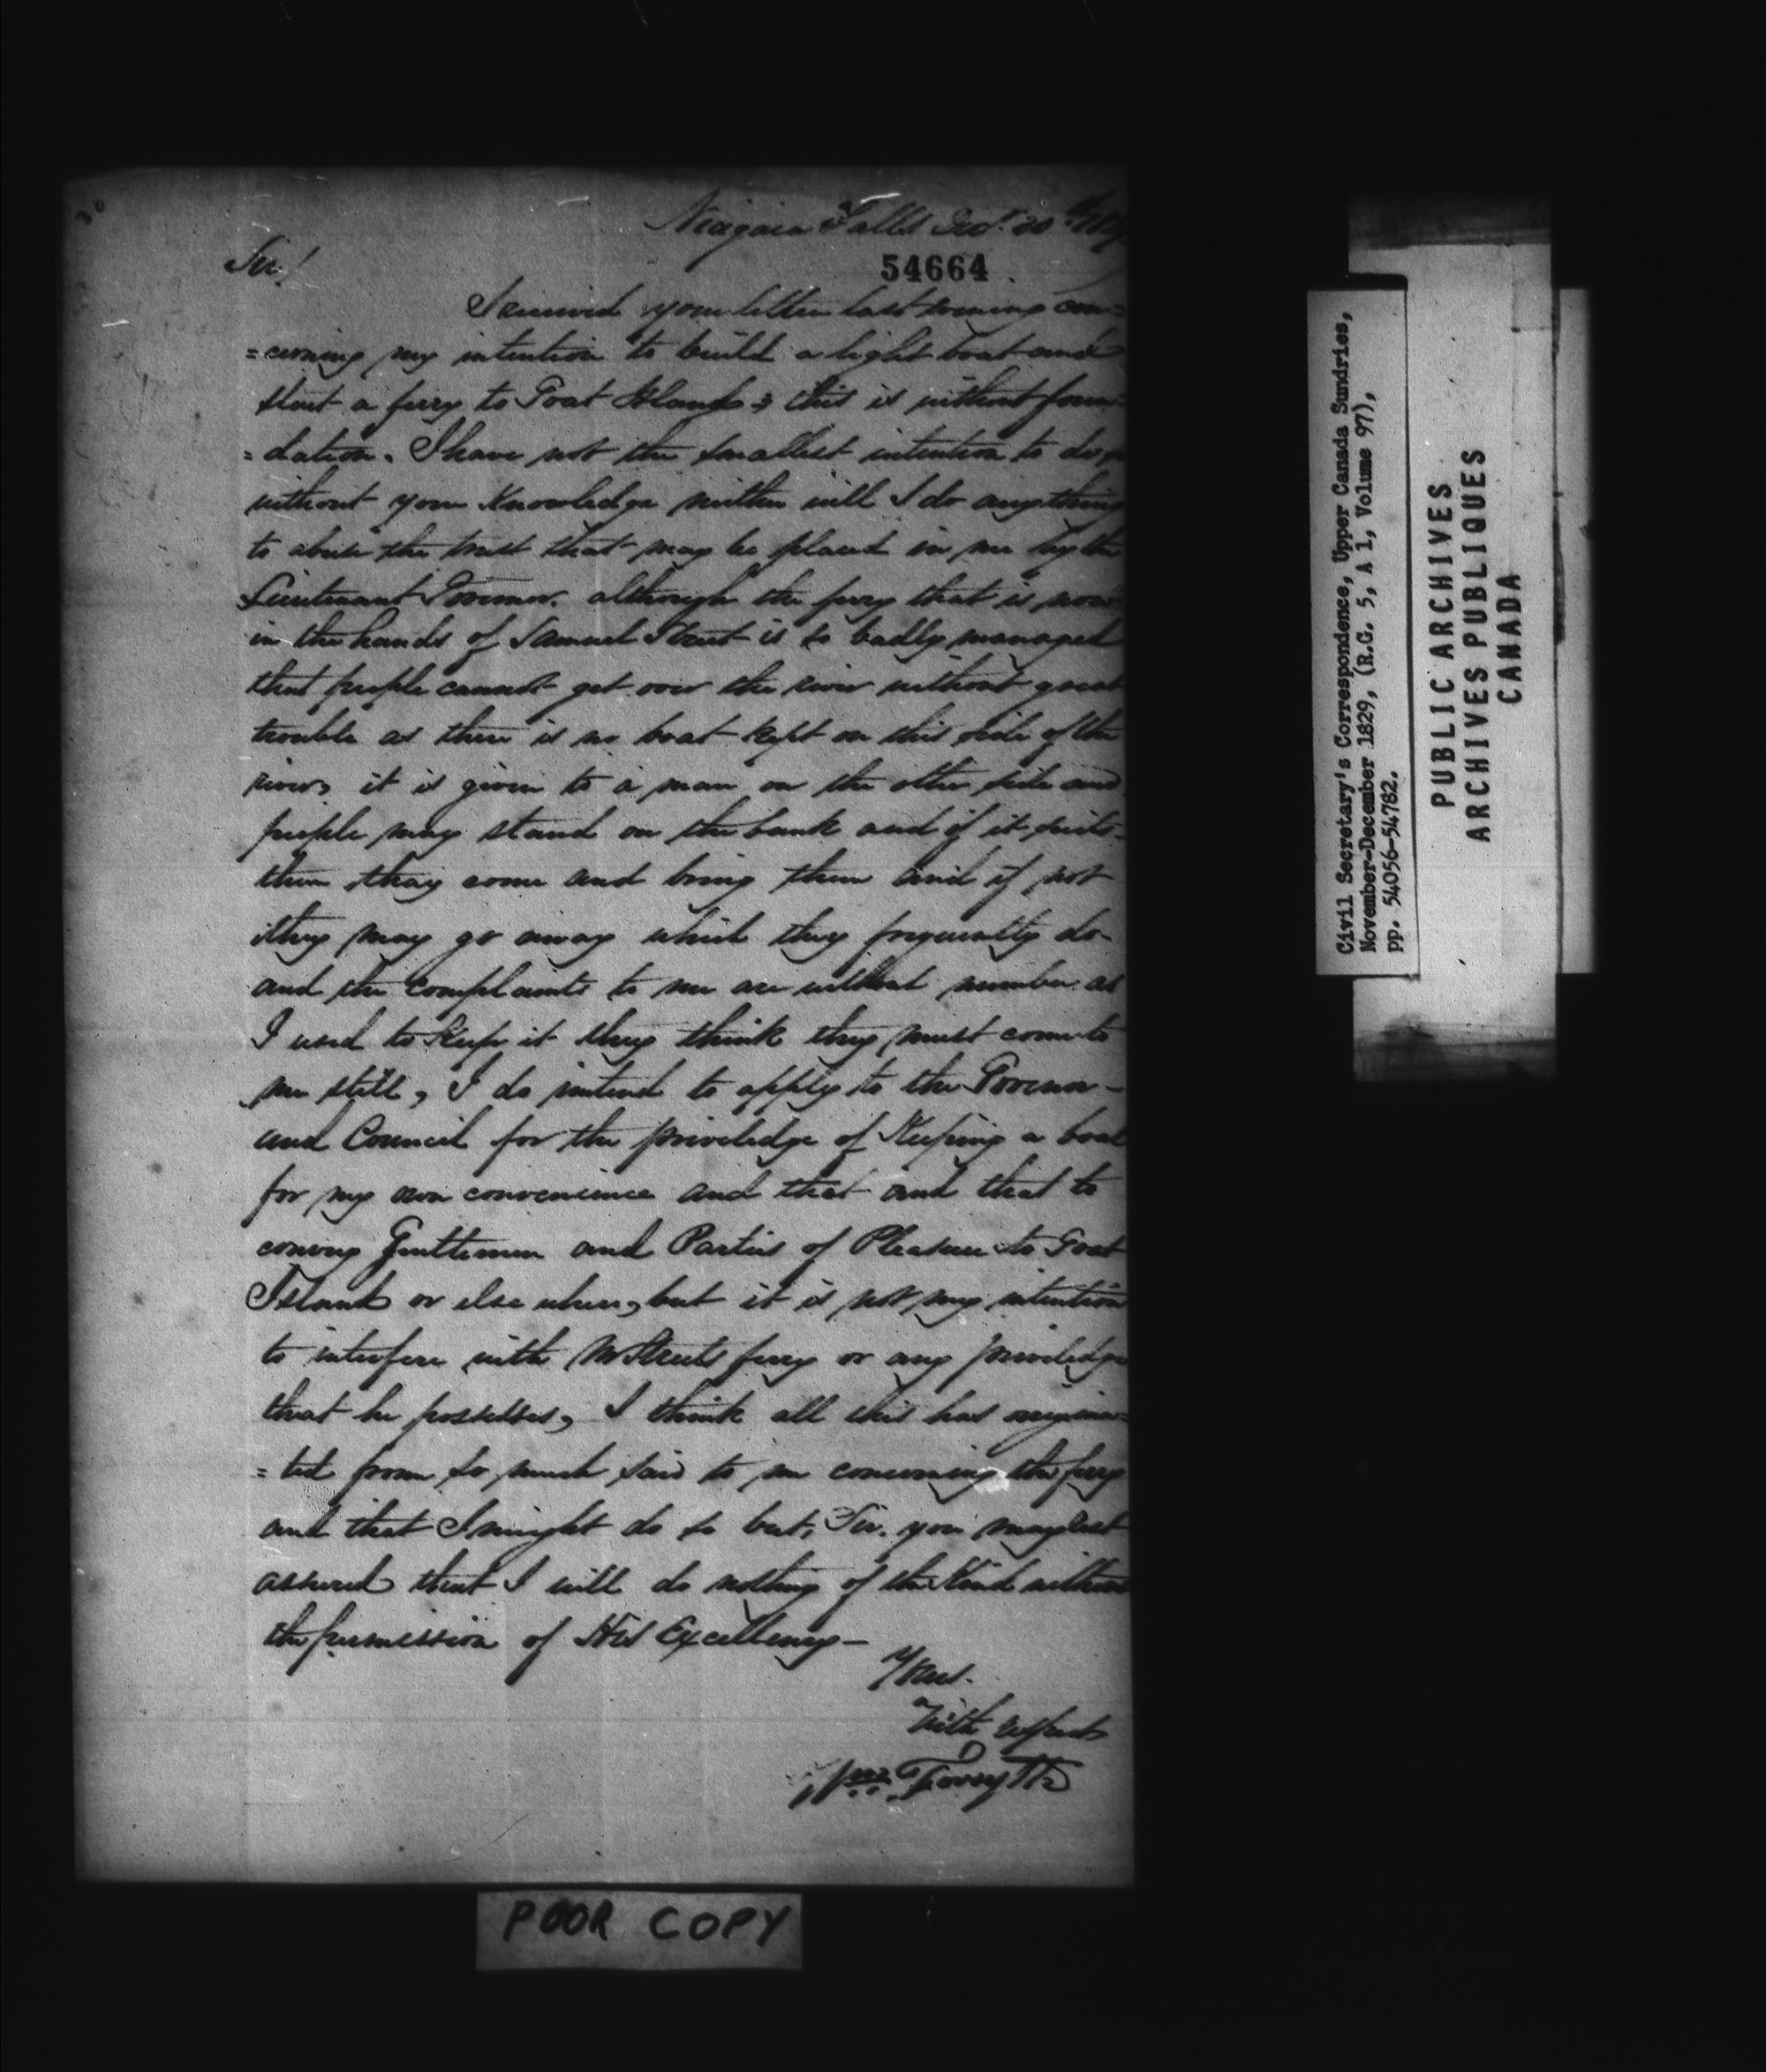 30
Niagara Falls Decr. 20th 1829
54664
Sir!
I received your letter last evening con=
=cerning my intention to build a light boat and
start a ferry to Goat Island; this is without foun=
=dation. I have not the smallest intention to do so
without your Knowledge neither will I do anything
to abuse the trust that may be placed in me by the
Lieutenant Governor. although the ferry that is now
in the hands of Samuel Street is so badly managed
that people cannot get over the river without great
trouble as there is no boat kept on this side of the
river, it is given to a man on the other side and
people may stand on the bank and if it suits
them thay come and bring them and if not
they may go away which they frequently do
and the complaints to me are without number as
I used to Keep it they think they must come to
me still, I do intend to apply to the Governor
and Council for the priveledge of Keeping a boat
for my own convenience and that and that to
convey Gentlemen and Parties of Pleasure to Goat
Island or else where, but it is not my intention
to interfere with Mr Streets ferry or any priveledge
that he possesses, I think all this has origina=
=ted from so much said to me concerning the ferry
and that I might do so but, Sir. you may rest
assured that I will do nothing of the Kind without
the permission of His Excellency—
Yours.
With respect
Wm. Forsyth
POOR COPY
Civil Secretary's Correspondence, Upper Canada Sundries,
November-December 1829, (R.G. 5, A 1, Volume 97),
pp. 54056-54782.
PUBLIC ARCHIVES
ARCHIVES PUBLIQUES
CANADA